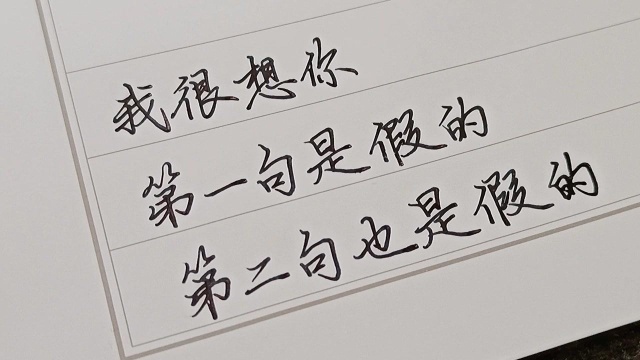 我很想你
第一句是假的
第二句也是假的